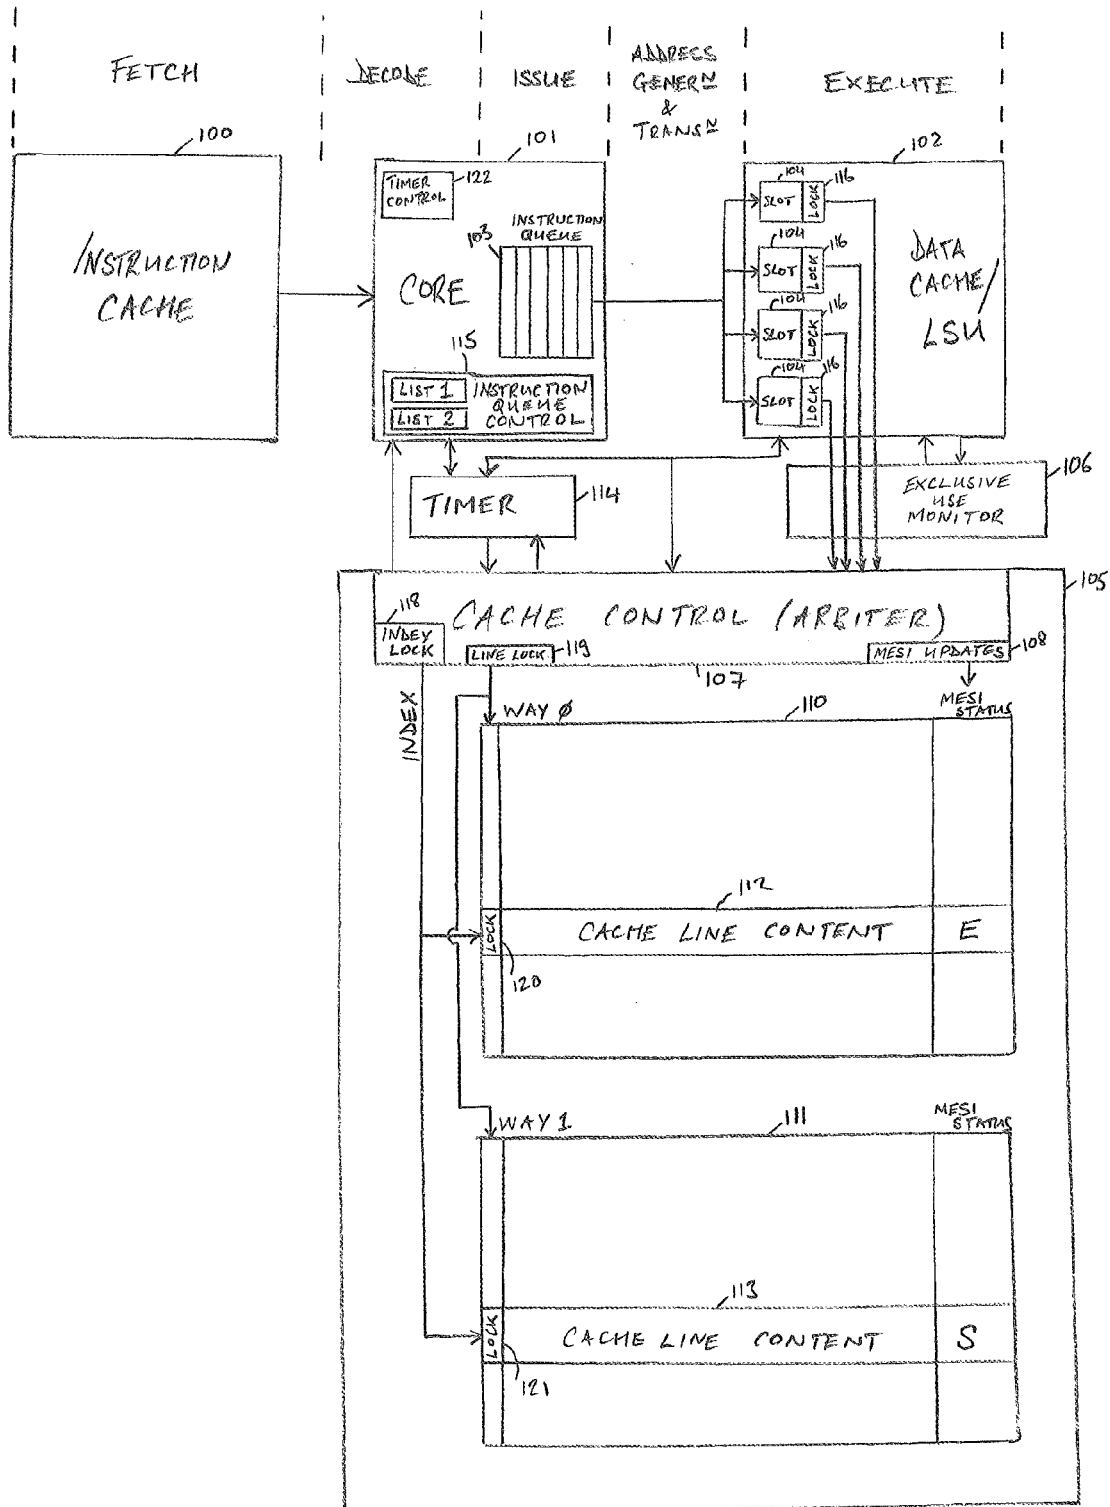 FETCH
DECODE
ISSUE
ADDRESS
GENERN
&
TRANSN
EXECUTE
100
101
102
INSTRUCTION
CACHE
TIMER
CONTROL
122
103
INSTRUCTION
QUEUE
CORE
115
LIST 1
LIST 2
INSTRUCTION
QUEUE
CONTROL
104
116
SLOT
LOCK
104
116
SLOT
LOCK
104
116
SLOT
LOCK
104
116
SLOT
LOCK
DATA
CACHE/
LSU
TIMER
114
EXCLUSIVE
USE
MONITOR
106
105
118
INDEX
LOCK
CACHE CONTROL (ARBITER)
LINE LOCK
119
MESI UPDATES
108
107
INDEX
WAY 0
110
MESI
STATUS
112
LOCK
CACHE LINE CONTENT
E
120
WAY 1
111
MESI
STATUS
113
LOCK
CACHE LINE CONTENT
S
121